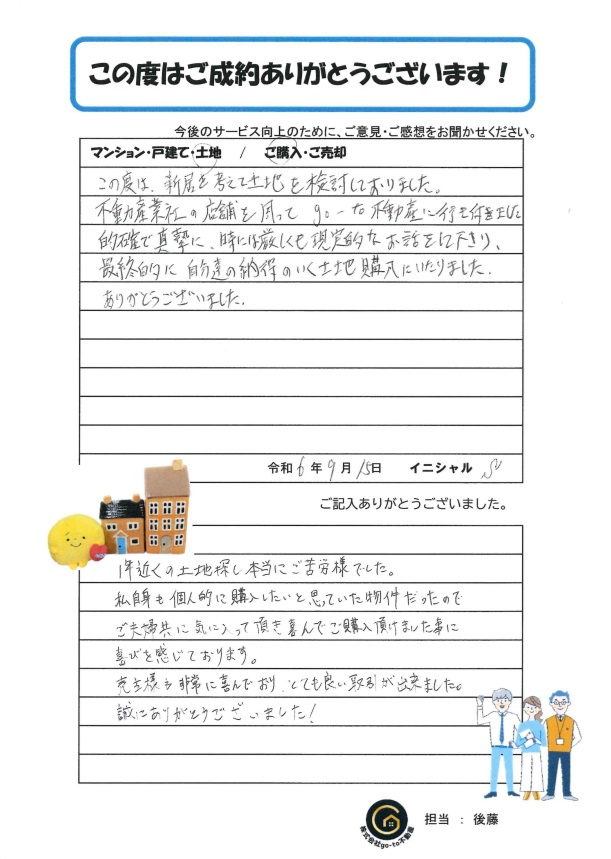 この度はご成約ありがとうございます！
今後のサービス向上のために、ご意見・ご感想をお聞かせください。
マンション・戸建て・土地 / ご購入・ご売却
この度は、新居を考えて土地を検討しておりました。
不動産業社の店舗を周って go-to不動産に行き付きました
的確で真摯に、時には厳しくも現実的なお話をして下さり、
最終的に自分達の納得のいく土地購入にいたりました.
ありがとうございました.
令和6年9月15日 イニシャル
ご記入ありがとうございました。
1年近くの土地探し本当にご苦労様でした。
私自身も個人的に購入したいと思っていた物件だったので
ご夫婦共に気に入って頂き喜んでご購入頂けました事に
喜びを感じております。
売主様も非常に喜んでおり、とても良い取引が出来ました。
誠にありがとうございました！
株式会社go-to不動産
担当 : 後藤